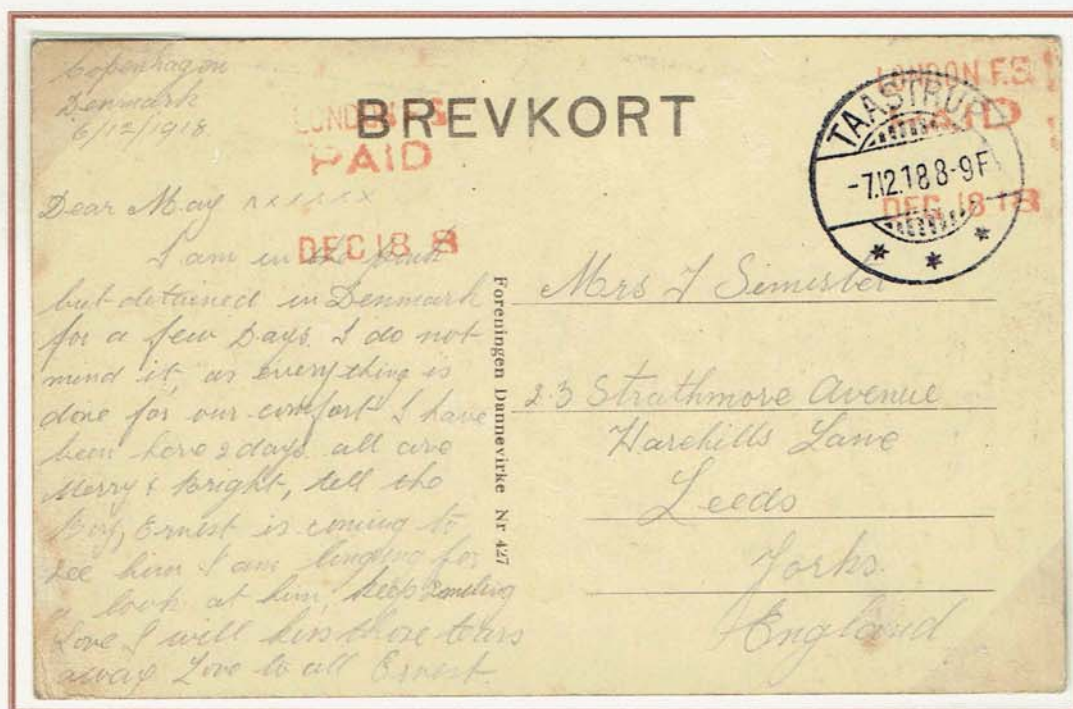 Copenhagen
Denmark
6/12/1918
BREVKORT
LONDON F.S.
PAID
DEC 18 18
LONDON F.S.
PAID
DEC 18 18
TAASTRUP
-7.12.18 8-9F
Dear May xxxxxx
I am in the
but detained in Denmark
for a few Days. I do not
mind it, as everything is
done for our comfort I have
been here 2 days all are
Merry & Bright, tell the
Boy, Ernest is coming to
see him I am longing for
a look at him, keep smiling
Love I will kiss those tears
away Love to all Ernest.
Foreningen Dannevirke Nr 427
Mrs J Simister
23 Strathmore Avenue
Harehills Lane
Leeds
Yorks.
England